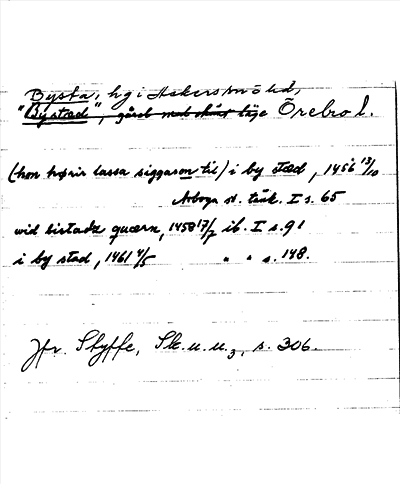 Bysta, hg i Askers sn o hd,
"Bystæd", gård med okänt läge Örebro l.
(hon hørir lassa siggason til) i by stæd, 1456 13/10
Arboga st. tänk. I s. 65
wid bistada quærn, 1458 17/7 ib. I s. 91
i by stad, 1461 4/5 " " s. 148.
Jfr. Styffe, Sk. u. u. 3, s. 306.